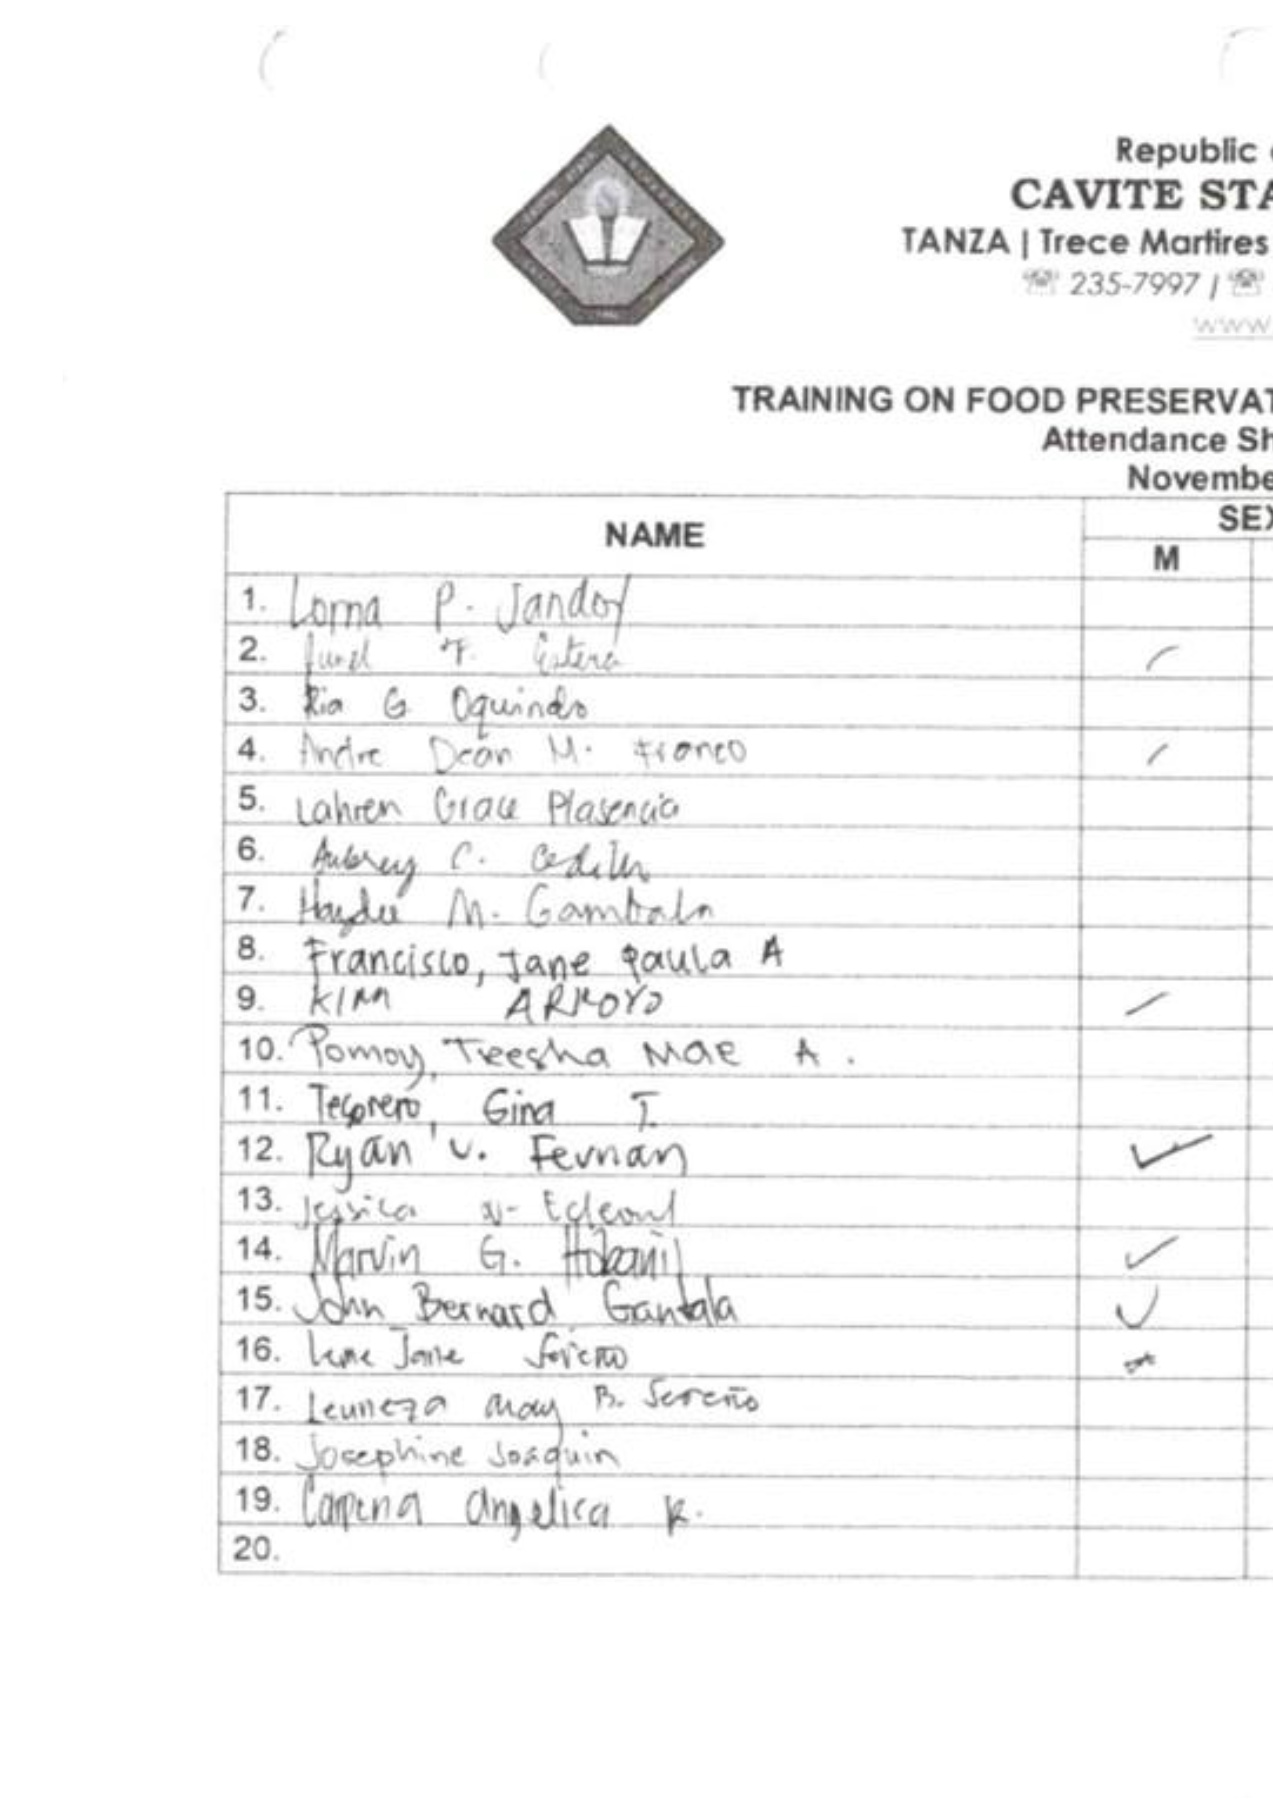 Republic
CAVITE STA
TANZA | Trece Martires
☏ 235-7997 / ☏
www
TRAINING ON FOOD PRESERVAT
Attendance Sh
Novembe
NAME
SEX
M
1. Lorna P. Jandoy
2. Junel F. Estera
3. Ria G Oquindo
4. Andre Dean M. Franco
5. Lahren Grace Plasencia
6. Aubrey C. Cedillo
7. Haydee M. Gambala
8. Francisco, Jane Paula A
9. KIM ARROYO
10. Pomoy, Treesha Mae A.
11. Tesorero, Gina T.
12. Ryan V. Fernan
13. Jessica N.
14. Marvin G. Hobanil
15. John Bernard Gantala
16. Jane Sereño
17. Leuneza May B. Sereño
18. Josephine Joaquin
19. Carpena Angelica R.
20.